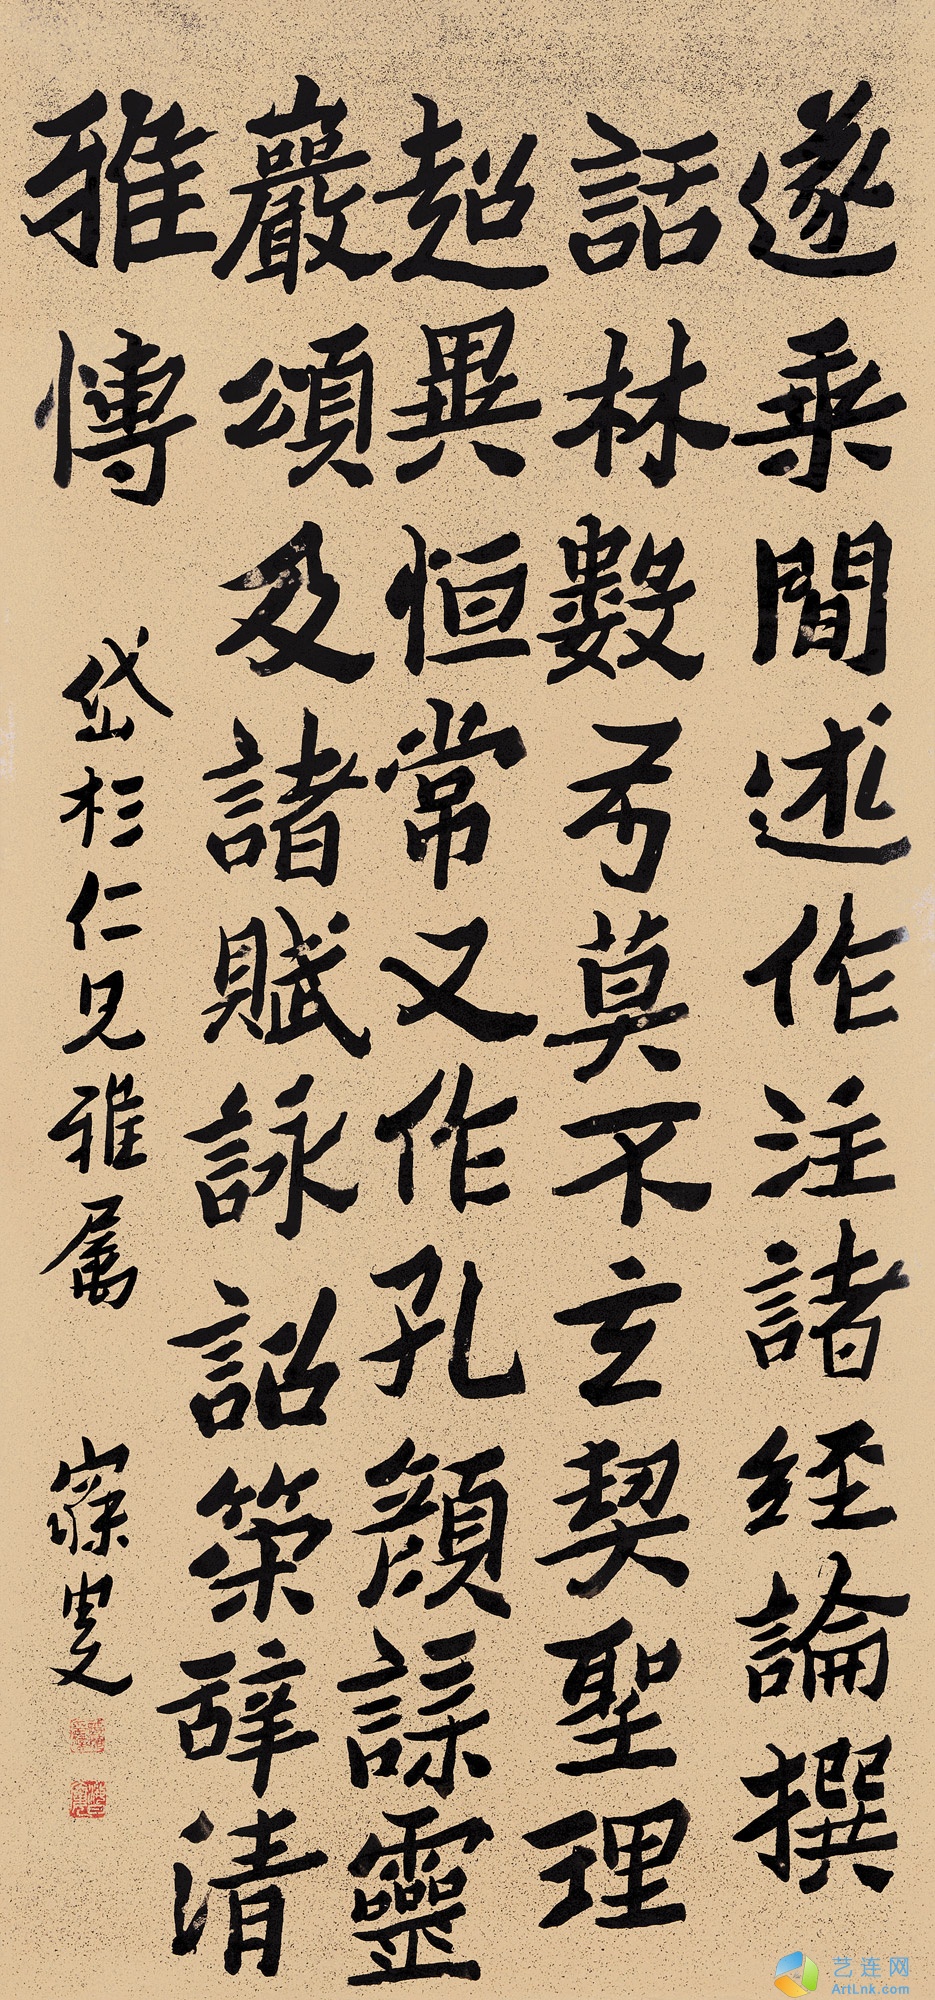 遂乘閒述作注諸經論撰
話林數弓莫不玄契聖理
超異恒常又作孔顏誄靈
巖頌及諸賦詠詔策辭清
雅愽
岱杉仁兄雅属
寐叟
艺连网
ArtLnk.com